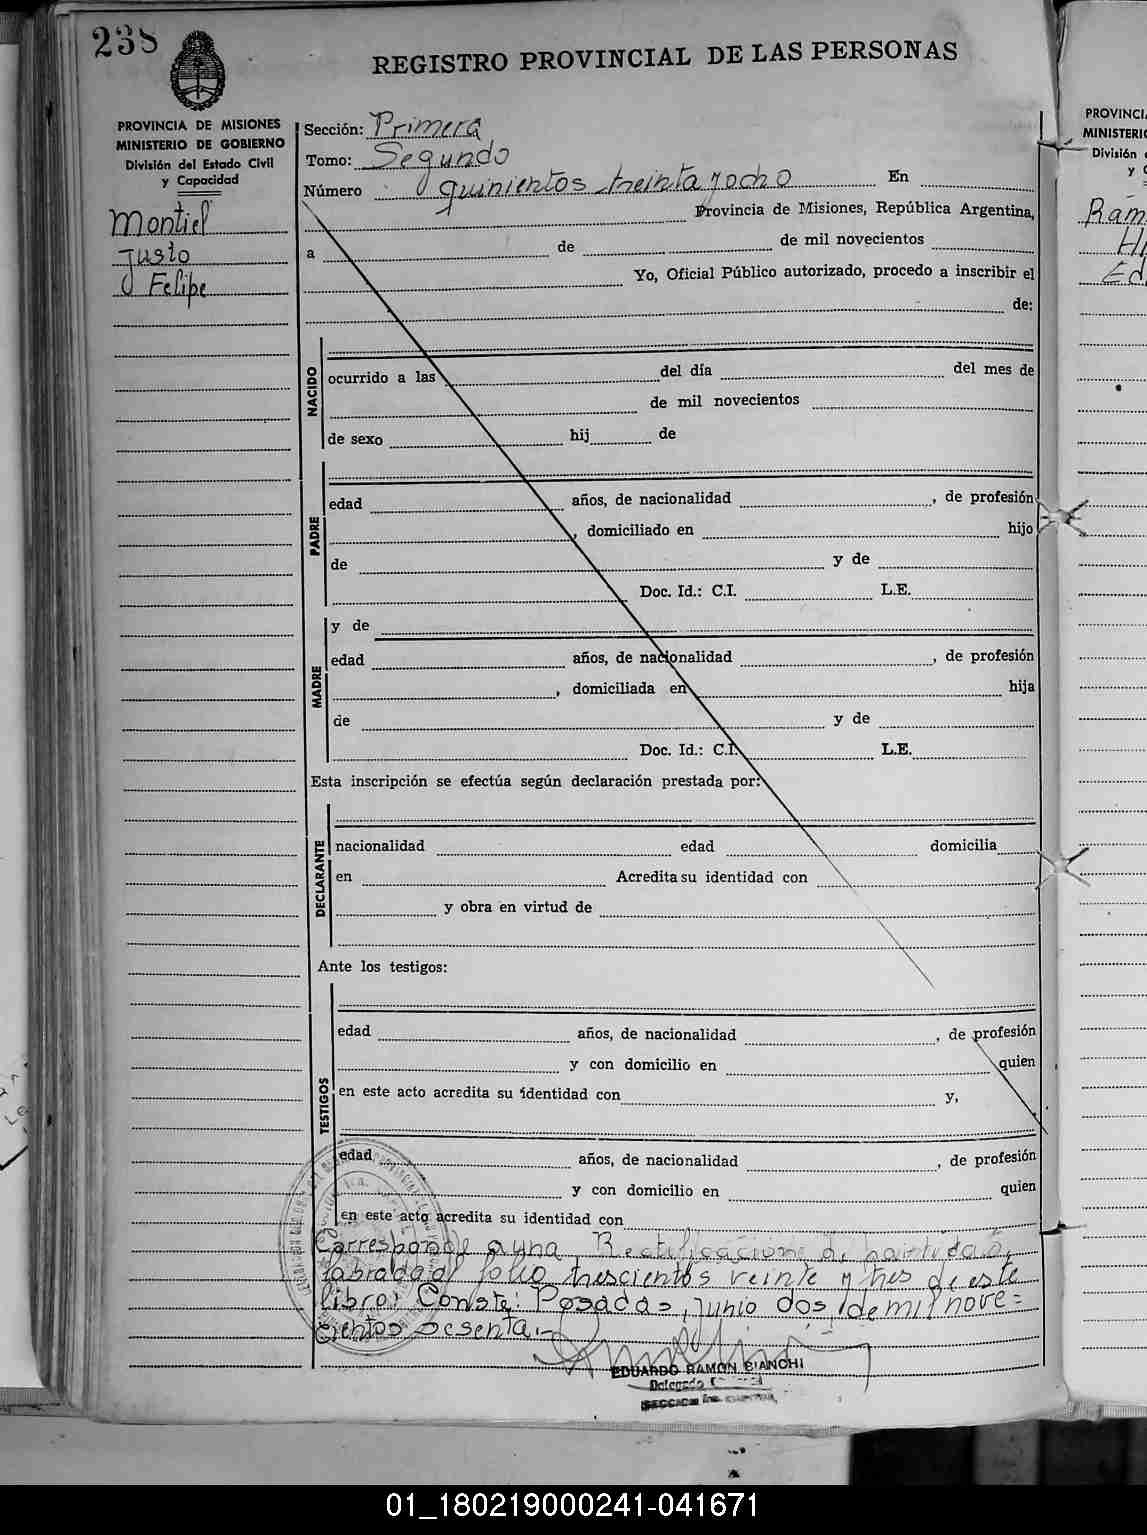 238
REGISTRO PROVINCIAL DE LAS PERSONAS
PROVINCIA DE MISIONES
MINISTERIO DE GOBIERNO
División del Estado Civil
y Capacidad
Montiel
Justo
Felipe
Sección: Primera
Tomo: Segundo
Número quinientos treinta y ocho En
Provincia de Misiones, República Argentina,
a de de mil novecientos
Yo, Oficial Público autorizado, procedo a inscribir el
de:
NACIDO
ocurrido a las del día del mes de
de mil novecientos
de sexo hij de
PADRE
edad años, de nacionalidad , de profesión
, domiciliado en hijo
de y de
Doc. Id.: C.I. L.E.
y de
MADRE
edad años, de nacionalidad , de profesión
, domiciliada en hija
de y de
Doc. Id.: C.I. L.E.
Esta inscripción se efectúa según declaración prestada por:
DECLARANTE
nacionalidad edad domicilia
en Acredita su identidad con
y obra en virtud de
Ante los testigos:
TESTIGOS
edad años, de nacionalidad , de profesión
y con domicilio en quien
en este acto acredita su identidad con y,
edad años, de nacionalidad , de profesión
y con domicilio en quien
en este acto acredita su identidad con
Corresponde a una Rectificacione de
labrada al folio trescientos veinte y tres de este
libro: Conste: Posadas, junio dos, de mil nove=
cientos sesenta.-
EDUARDO RAMON BIANCHI
Delegado
SECCION 1ra.
PROVINCI
MINISTERIO
División
y C
Ram
Hi
Ed
01_180219000241-041671